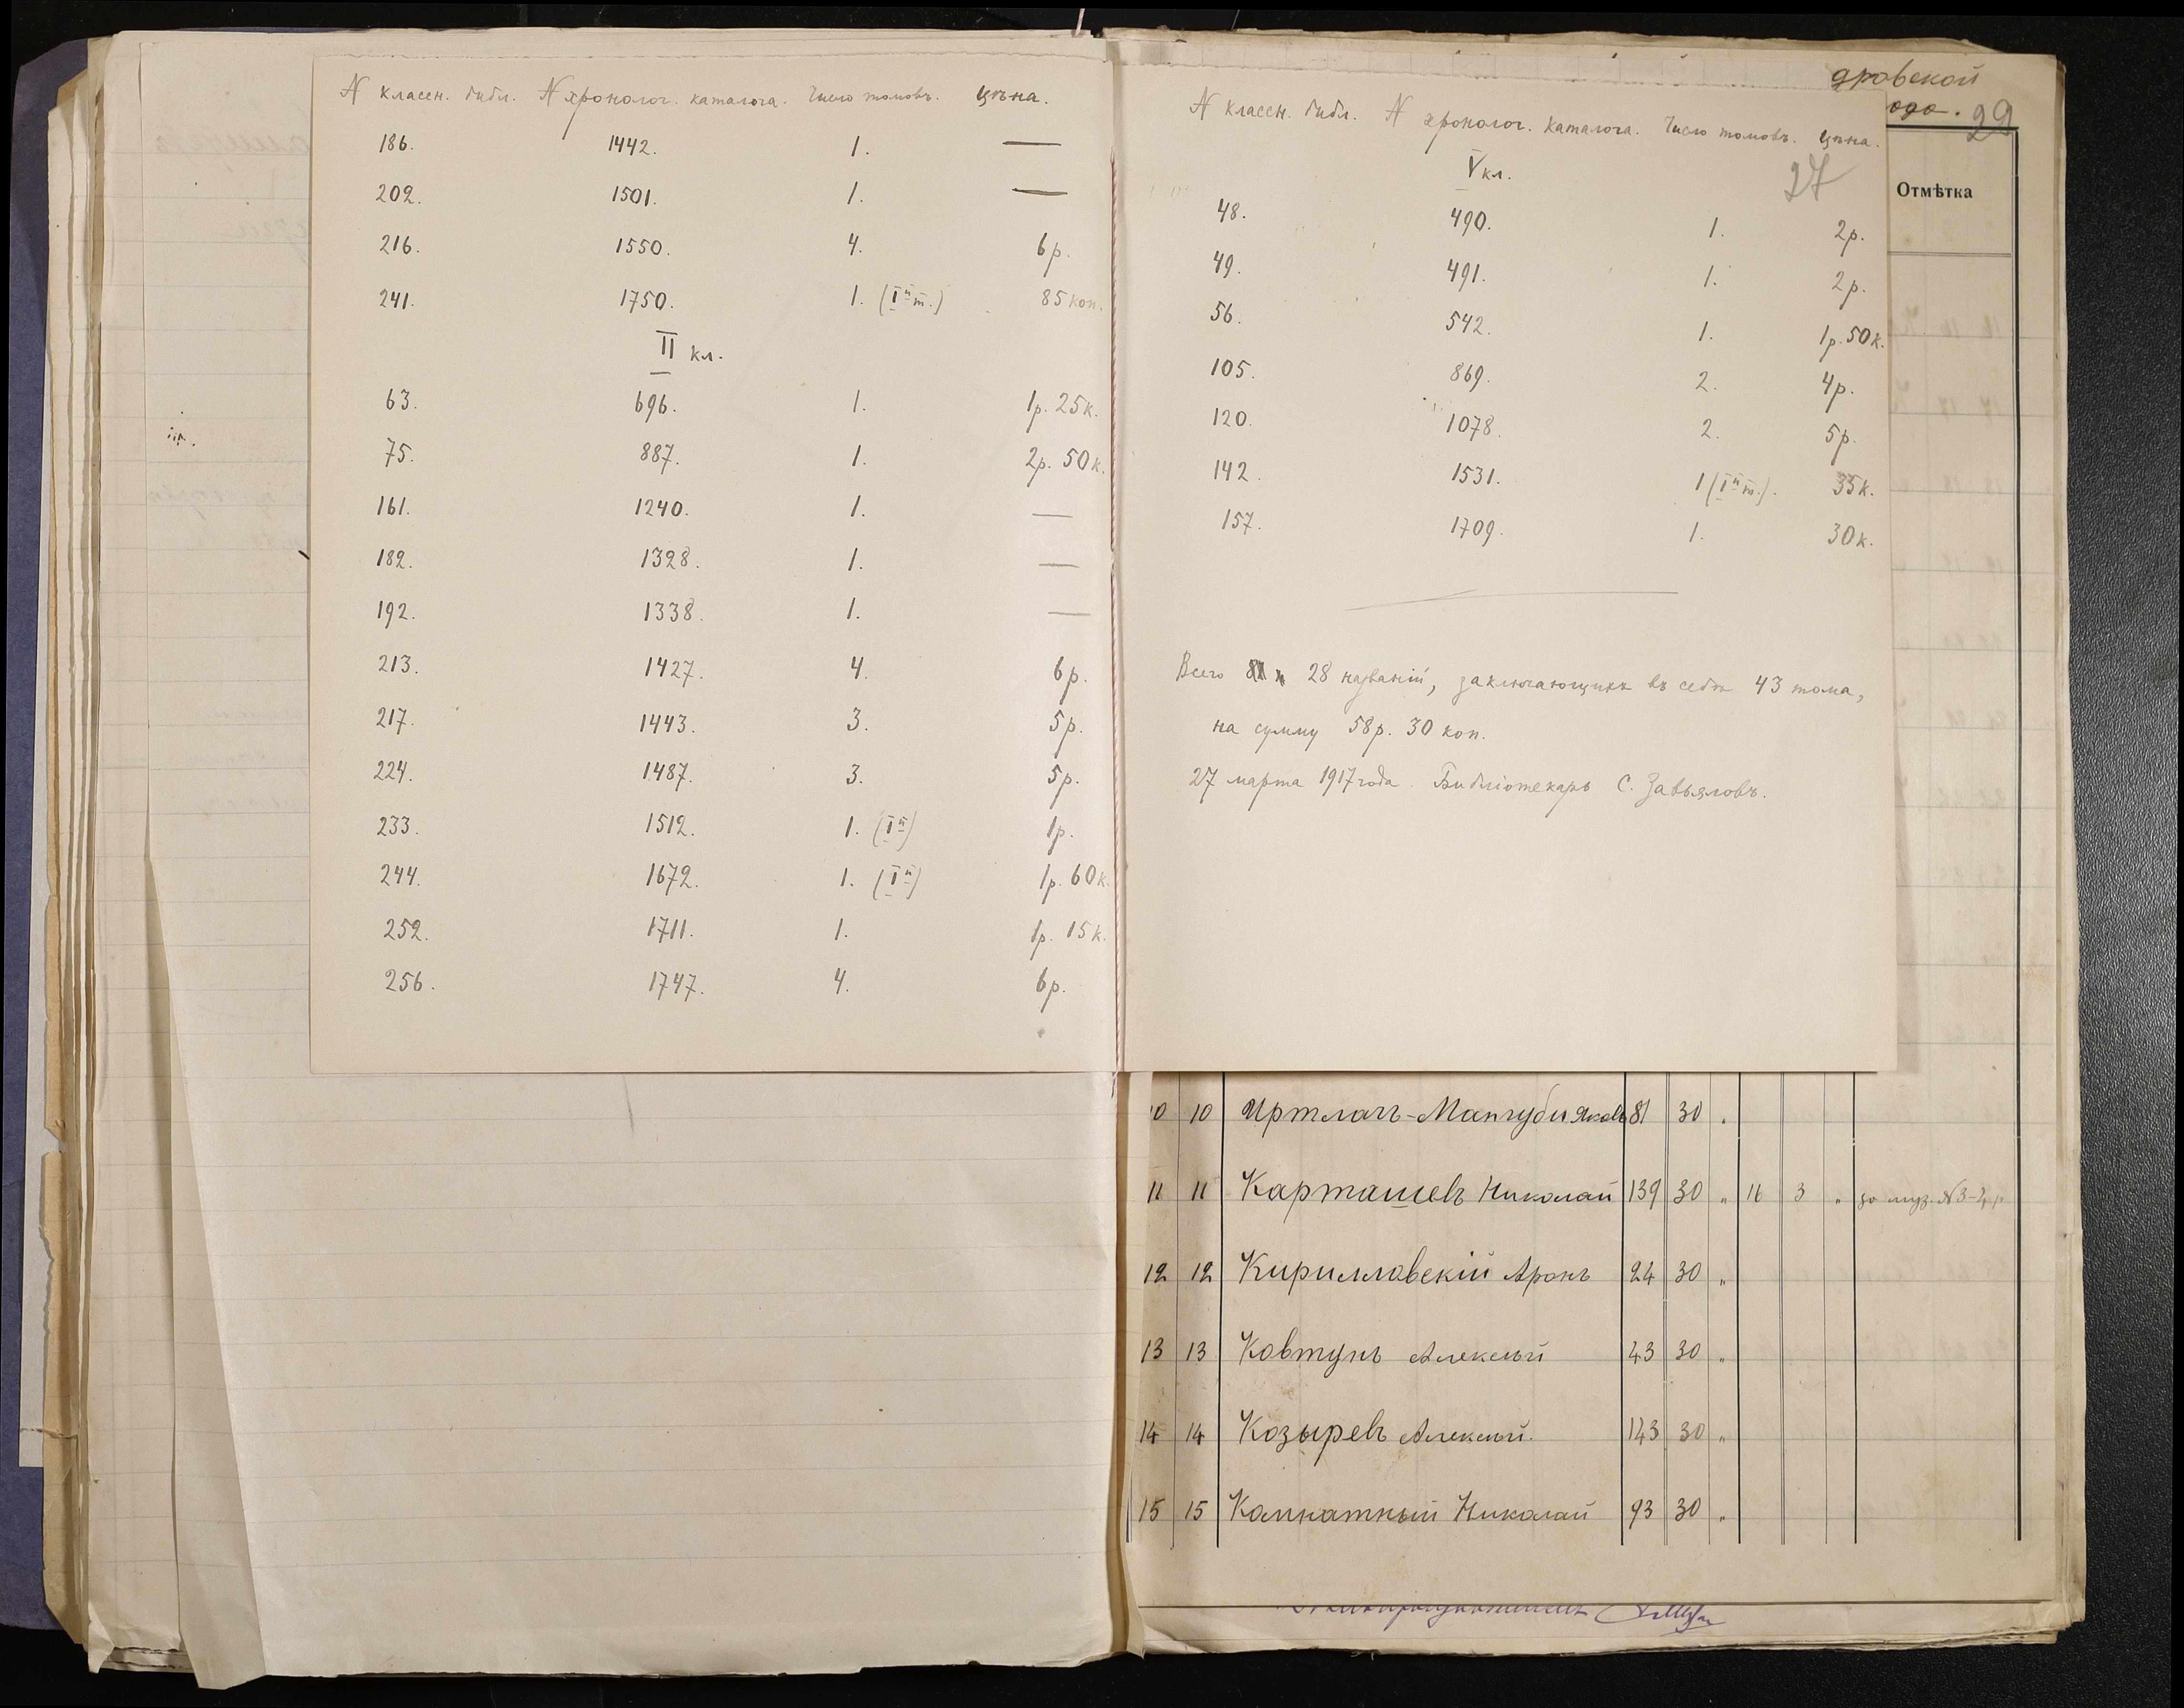 N классн. библ. N хронолог. каталога. Число томовъ. Цѣна.
186. 1442. 1. —
202. 1501. 1. —
216. 1550. 4. 6р.
241. 1750. 1. (I й т.) 85 коп.
II кл.
63. 696. 1. 1р. 25к.
75. 887. 1. 2р. 50к.
161. 1240. 1. —
182. 1328. 1. —
192. 1338. 1. —
213. 1427. 4. 6р.
217. 1443. 3. 5р.
224. 1487. 3. 5р.
233. 1512. 1. (I й) 1р.
244. 1672. 1. (I й) 1р. 60к.
252. 1711. 1. 1р. 15к.
256. 1747. 4. 6р.
дровской
ода. 29
N классн. библ. N хронолог. каталога. Число томовъ. Цѣна.
27
V кл.
Отмѣтка
48. 490. 1. 2р.
49. 491. 1. 2р.
56. 542. 1. 1р. 50к.
105. 869. 2. 4р.
120. 1078. 2. 5р.
142. 1531. 1 (I й т.). 35к.
157. 1709. 1. 30к.
Всего 28 названій, заключающихъ въ себѣ 43 тома,
на сумму 58р. 30 коп.
27 марта 1917 года. Библіотекарь С. Завьяловъ.
10 10 Иртлачъ-Мангуби Яковъ 81 30 "
11 11 Карташевъ Николай 139 30 " 16 3 "
12 12 Кирилловскій Аронъ 24 30 "
13 13 Ковтунъ Алексѣй 43 30 "
14 14 Козыревъ Алексѣй. 143 30 "
15 15 Комнатный Николай 93 30 "